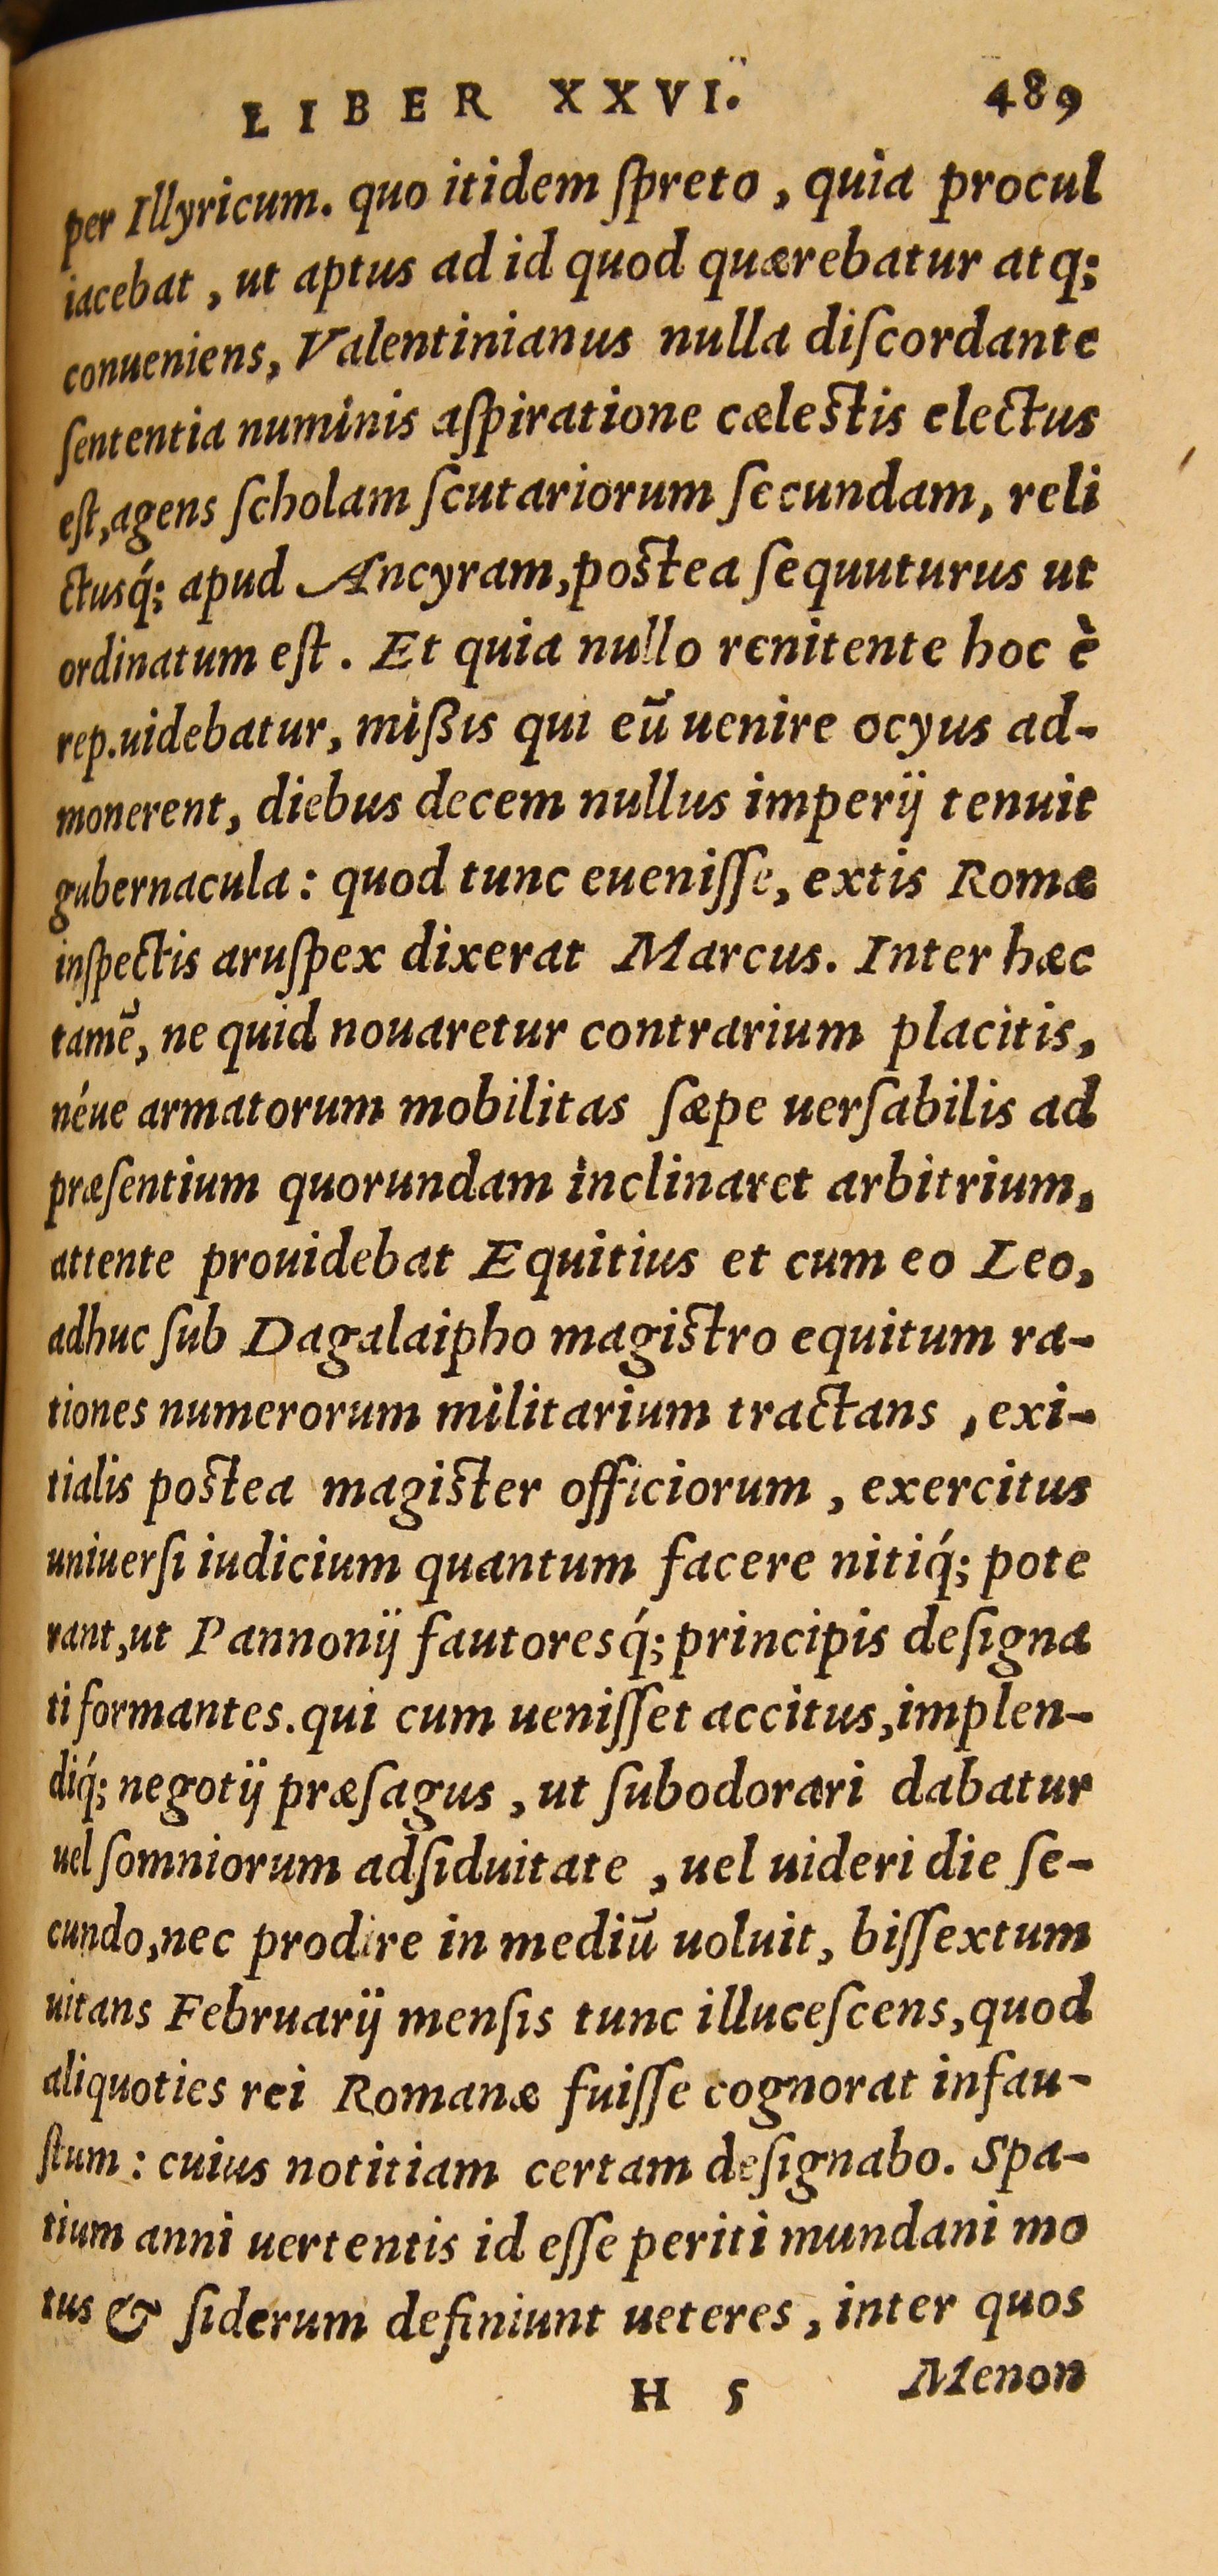 LIBER XXVI. 489
per Illyricum. quo itidem ſpreto, quia procul
iacebat, ut aptus ad id quod quærebatur atq;
conueniens, Valentinianus nulla diſcordante
ſententia numinis aſpiratione cæleſtis electus
eſt, agens ſcholam ſcutariorum ſecundam, reli
ctusq́; apud Ancyram, poſtea ſequuturus ut
ordinatum eſt. Et quia nullo renitente hoc è
rep. uidebatur, mißis qui eū uenire ocyus ad-
monerent, diebus decem nullus imperij tenuit
gubernacula: quod tunc eueniſſe, extis Romæ
inſpectis aruſpex dixerat Marcus. Inter hæc
tamē, ne quid nouaretur contrarium placitis,
néue armatorum mobilitas ſæpe uerſabilis ad
præſentium quorundam inclinaret arbitrium,
attente prouidebat Equitius et cum eo Leo,
adhuc ſub Dagalaipho magiſtro equitum ra-
tiones numerorum militarium tractans, exi-
tialis poſtea magiſter officiorum, exercitus
uniuerſi iudicium quantum facere nitiq́; pote
rant, ut Pannonij fautoresq́; principis deſigna
ti formantes. qui cum ueniſſet accitus, implen-
diq́; negotij præſagus, ut ſubodorari dabatur
uel ſomniorum adſiduitate, uel uideri die ſe-
cundo, nec prodire in mediū uoluit, biſſextum
uitans Februarij menſis tunc illuceſcens, quod
aliquoties rei Romanæ fuiſſe cognorat infau-
ſtum: cuius notitiam certam deſignabo. Spa-
tium anni uertentis id eſſe periti mundani mo
tus & ſiderum definiunt ueteres, inter quos
H 5 Menon